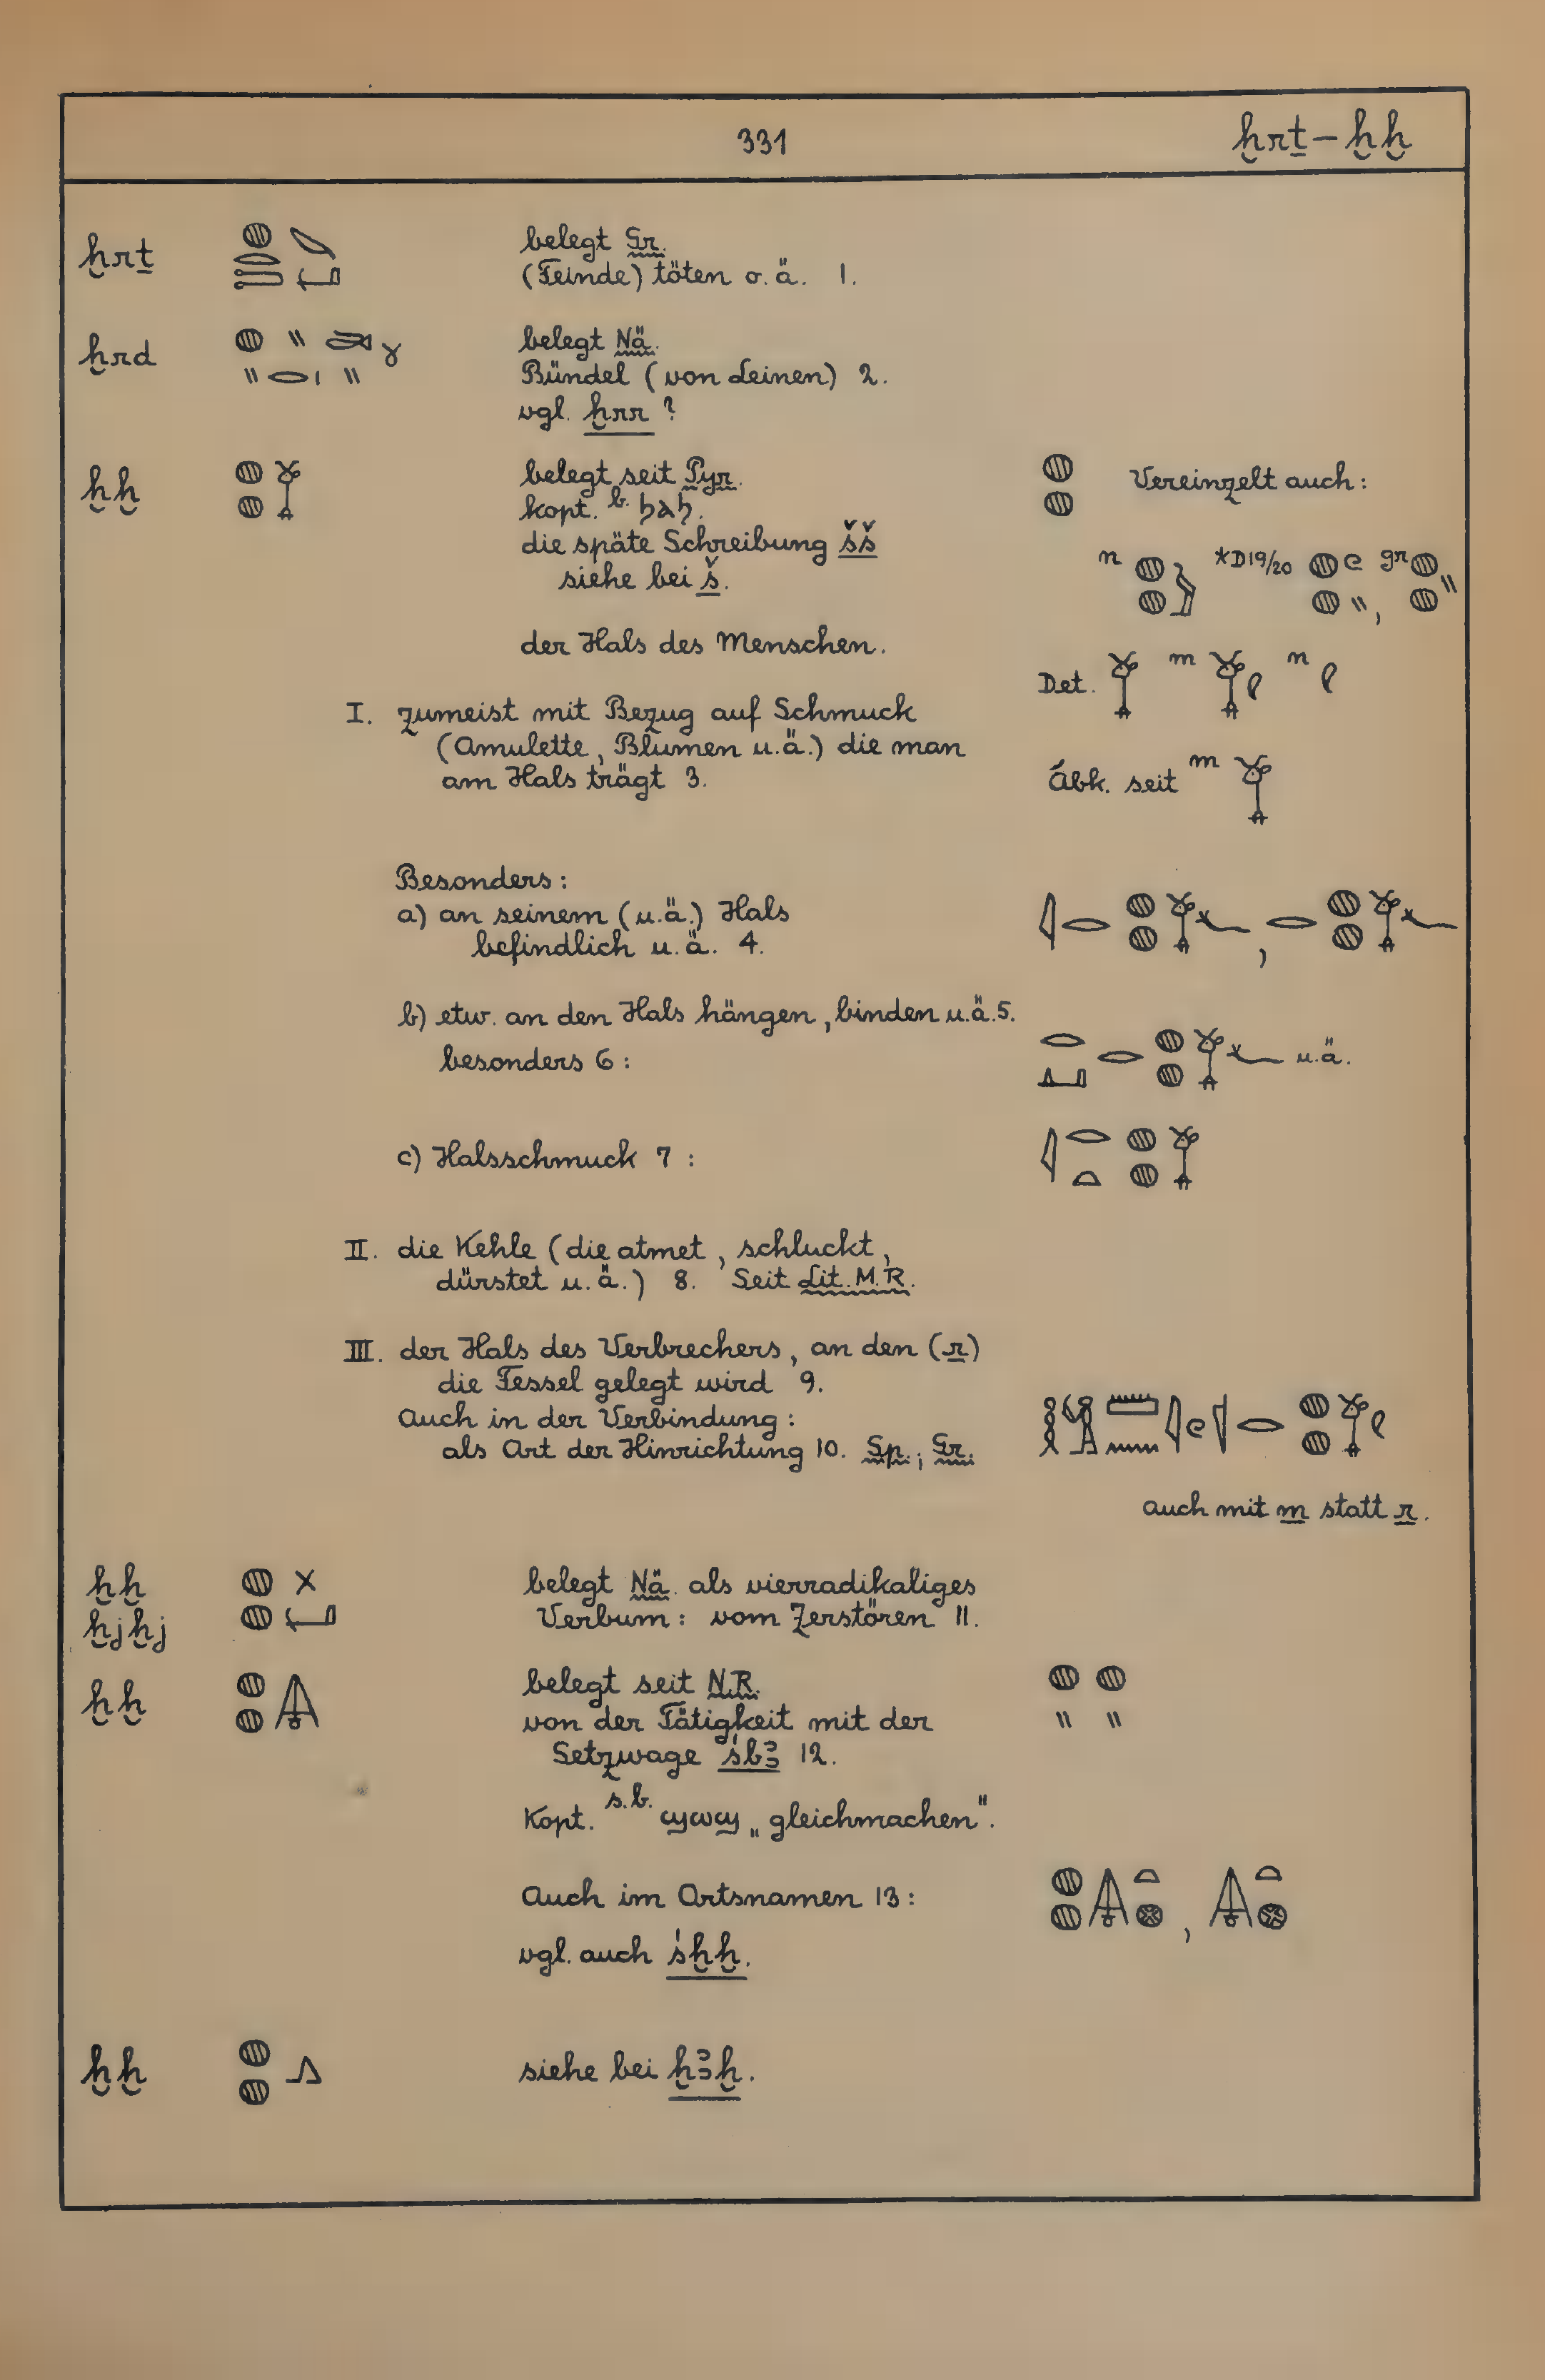 331 ḫrṯ – ḫḫ
ḫrṯ belegt Gr.
(Feinde) töten o.ä. 1.
ḫrd belegt Nä.
Bündel (von Leinen) 2.
vgl. ḫrr ?
ḫḫ belegt seit Pyr. Vereinzelt auch:
kopt. b. ϧⲁϧ.
die späte Schreibung šš
siehe bei š.
n *D19/20 gr
der Hals des Menschen.
Det. m n
I. zumeist mit Bezug auf Schmuck
(Amulette, Blumen u.ä.) die man
am Hals trägt 3. Abk. seit m
Besonders:
a) an seinem (u.ä.) Hals
befindlich u.ä. 4.
b) etw. an den Hals hängen, binden u.ä. 5.
besonders 6: u.ä.
c) Halsschmuck 7:
II. die Kehle (die atmet, schluckt,
dürstet u.ä.) 8. Seit Lit. M.R.
III. der Hals des Verbrechers, an den (r)
die Fessel gelegt wird 9.
Auch in der Verbindung:
als Art der Hinrichtung 10. Sp.; Gr.
auch mit m statt r.
ḫḫ belegt Nä. als vierradikaliges
ḫjḫj Verbum: vom Zerstören 11.
ḫḫ belegt seit N.R.
von der Tätigkeit mit der
Setzwage śbꜣ 12.
Kopt. s.b. ϣⲱϣ „gleichmachen".
Auch im Ortsnamen 13:
vgl. auch śḫḫ.
ḫḫ siehe bei ḫꜣḫ.